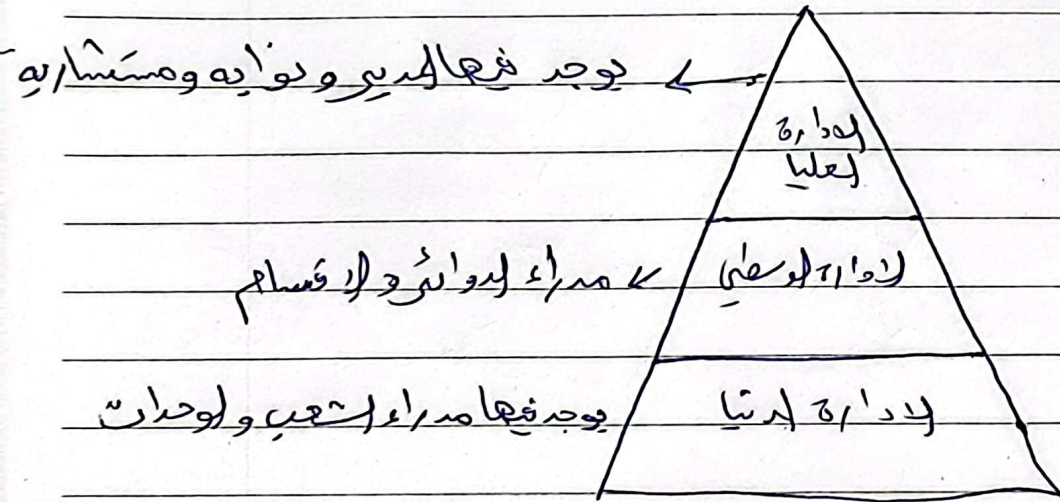 الادارة
العليا
يوجد فيها المدير ونوابه ومستشاريه
الادارة الوسطى
مدراء الدوائر والاقسام
الادارة الدنيا
يوجد فيها مدراء الشعب والوحدات